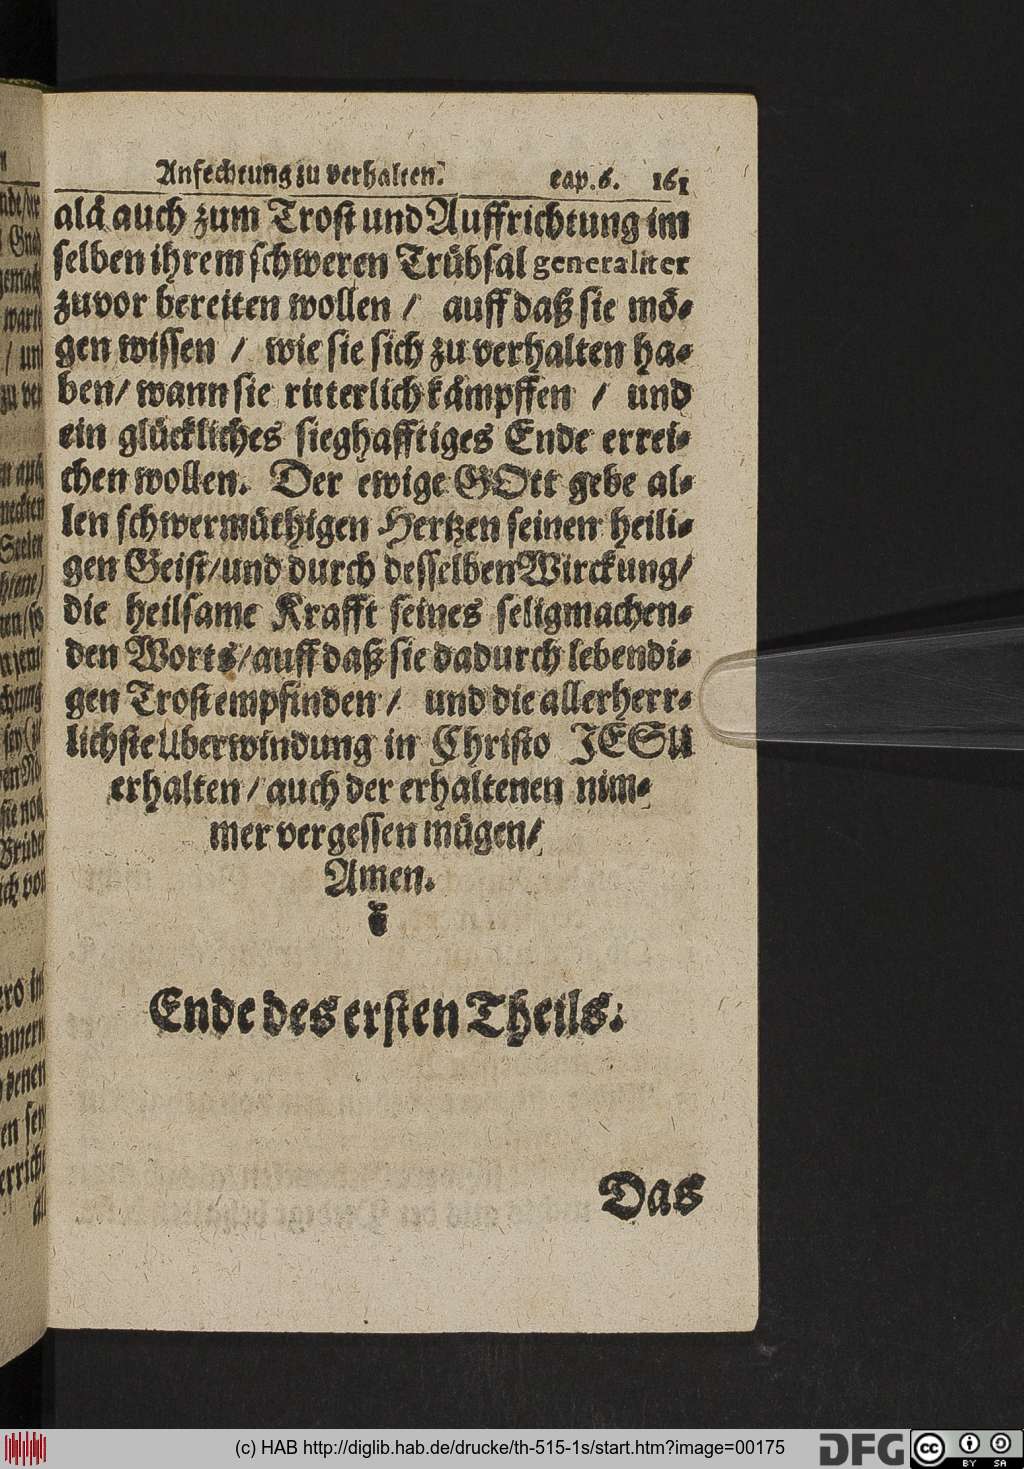 Anfechtung zu verhalten. cap. 6. 161
alda auch zum Trost und Auffrichtung im
selben ihrem schweren Trübsal generaliter
zuvor bereiten wollen / auff daß sie mö-
gen wissen / wie sie sich zu verhalten ha-
ben/ wann sie ritterlich kämpffen / und
ein glückliches sieghafftiges Ende errei-
chen wollen. Der ewige GOtt gebe al-
len schwermüthigen Hertzen seinen heili-
gen Geist/und durch desselben Wirckung/
die heilsame Krafft seines seligmachen-
den Worts/auff daß sie dadurch lebendi-
gen Trost empfinden / und die allerherr-
lichste Uberwindung in Christo JESU
erhalten / auch der erhaltenen nim-
mer vergessen mügen/
Amen.
Ende des ersten Theils.
Das
(c) HAB http://diglib.hab.de/drucke/th-515-1s/start.htm?image=00175
DFG
cc
BY SA